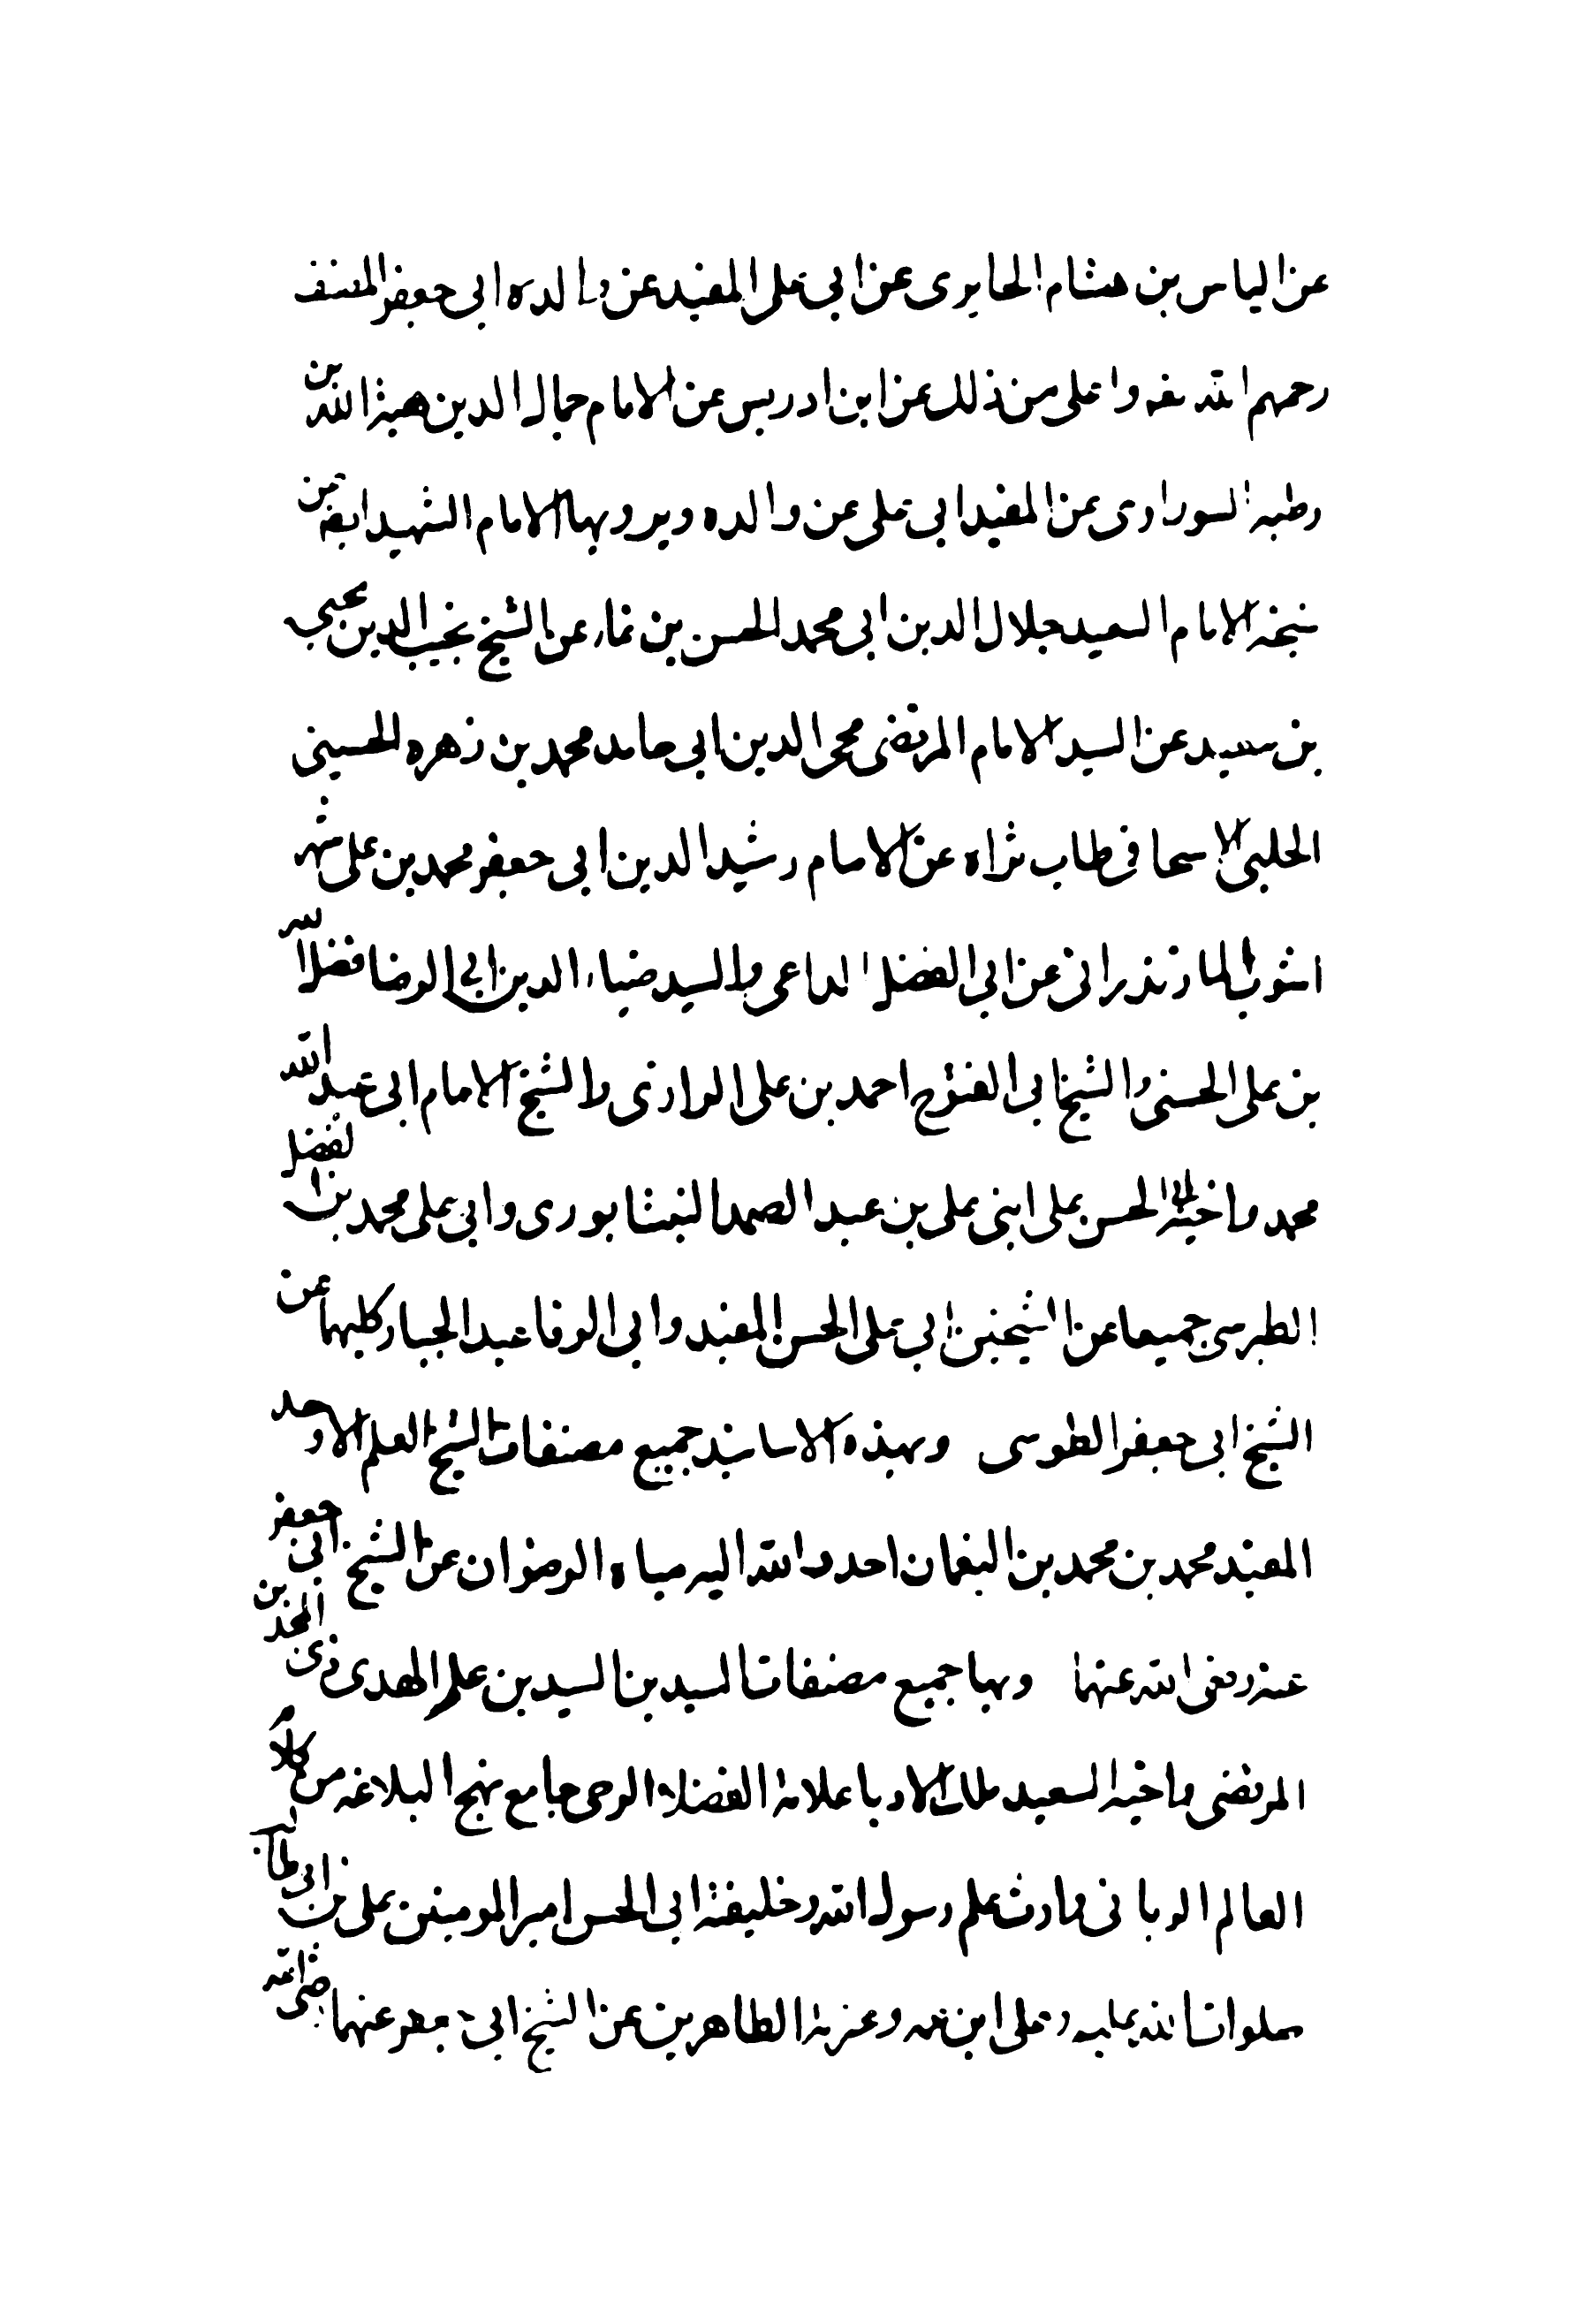 عن الياس بن هشام الحايرى عن ابى على المفيد عن والده ابى جعفر المصنف
رحمهم الله واعلى من ذلك عن ابن ادريس عن الامام جمال الدين هبة الله بن
رطبه السوراوى عن المفيد ابى على عن والده ويرويها الامام الشهيد ايضا عن
شيخه الامام السعيد جلال الدين ابى محمد الحسن بن نما عن الشيخ نجيب الدين يحيى
بن سعيد عن السيد الامام المرتضى محيى الدين ابى حامد محمد بن زهره الحسينى
الحلبى الاسحاقى طاب ثراه عن الامام رشيد الدين ابى جعفر محمد بن على شهر
اشوب المازندرانى عن ابى الفضل الداعى والسيد ضياء الدين ابى الرضا فضل الله
بن على الحسنى والشيخ ابى الفتوح احمد بن على الرازى والشيخ الامام ابى عبد الله
محمد واخيه الحسن على ابنى على بن عبد الصمد النيشابورى وابى على محمد بن الفضل
الطبرسى جميعا عن الشيخين ابى على الحسن المفيد وابى الوفا عبد الجبار كليهما عن
الشيخ ابى جعفر الطوسى وبهذه الاسانيد جميع مصنفات الشيخ العلم الاوحد
المفيد محمد بن محمد بن النعمان احدر الله اليه مياه الرضوان عن الشيخ ابى جعفر
عنه رضى الله عنهما وبها جميع مصنفات السيدين السيدين علم الهدى ذى المجدين
المرتضى واخيه السعيد ملك الادبا علامة الفضلاء الرضى جامع نهج البلاغه من كلام
العالم الربانى وارث علم رسول الله وخليفته ابى الحسن امير المومنين على بن ابى طالب
صلوات الله عليه وعلى ابن عمه وعترته الطاهرين عن الشيخ ابى جعفر عنهما رضى الله